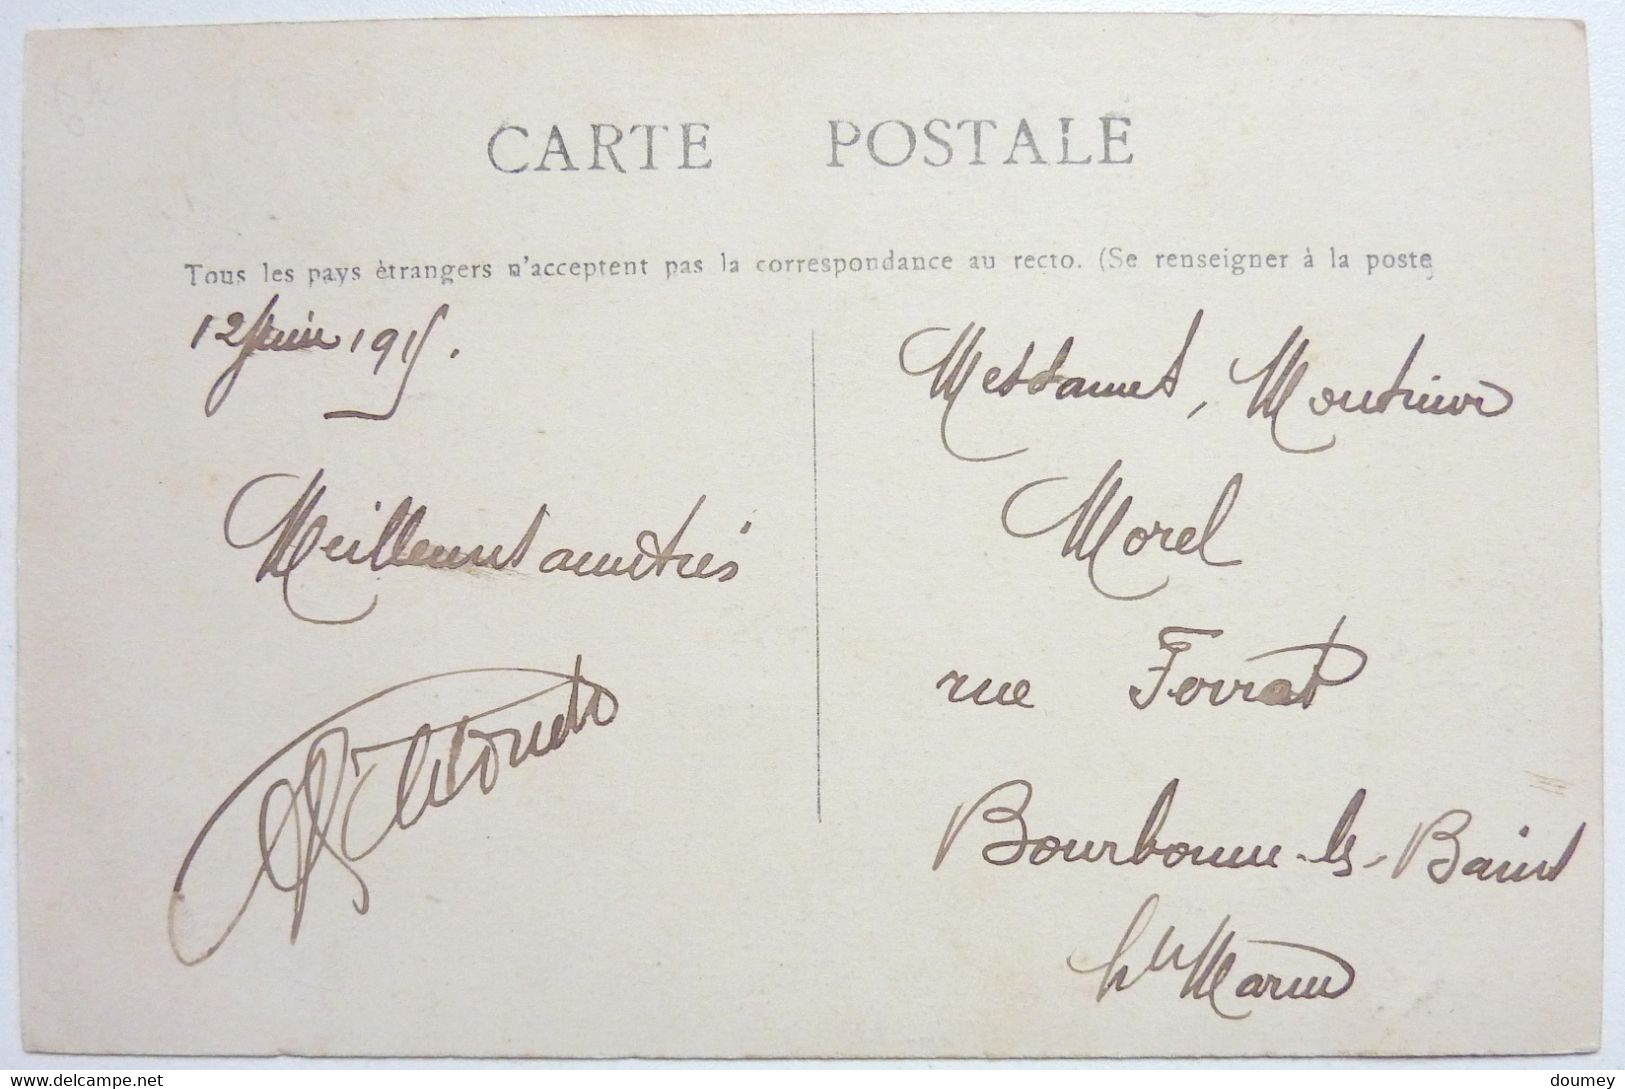 CARTE POSTALE
Tous les pays étrangers n'acceptent pas la correspondance au recto. (Se renseigner à la poste
12 Juin 1915.
Meilleures amitiés
Mesdames, Monsieur
Morel
rue Ferrat
Bourbonne-les-Bains
hte Marne
www.delcampe.net
doumey